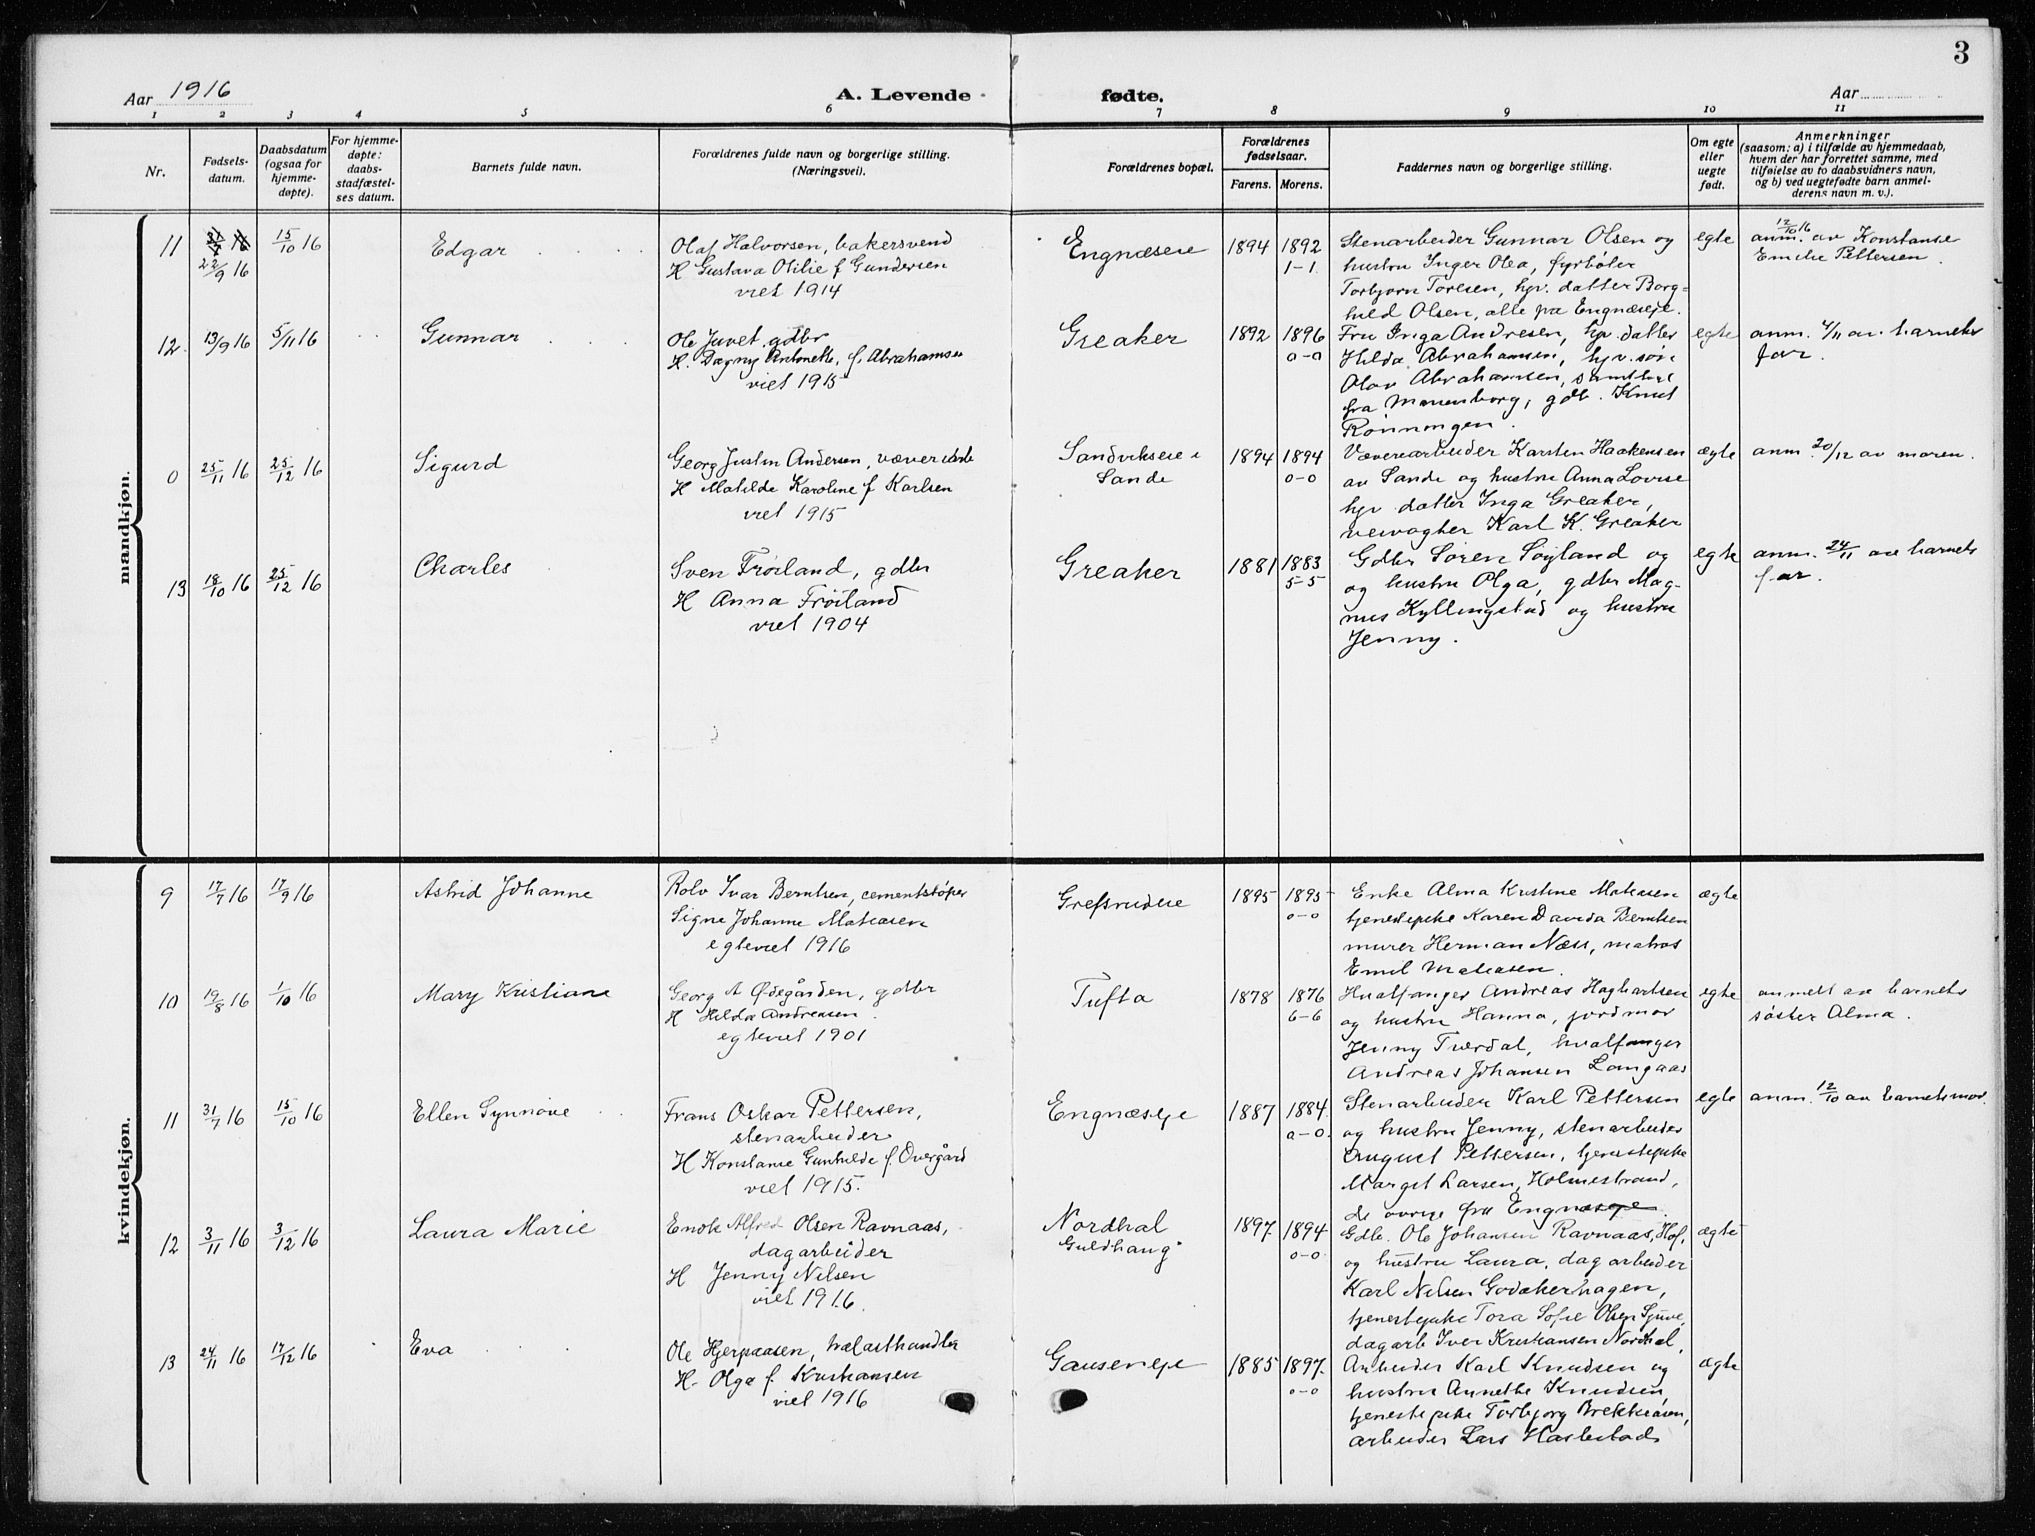 3
Aar 1916
A. Levende fødte.
Aar
1 2 3 4 5 6 7 8 9 10 11
Nr.
Fødsels-
datum.
Daabsdatum
(ogsaa for
hjemme-
døpte).
For hjemme-
døpte:
daabs-
stadfæstel-
ses datum.
Barnets fulde navn.
Forældrenes fulde navn og borgerlige stilling.
(Næringsvei).
Forældrenes bopæl.
Forældrenes
fødselsaar.
Farens. Morens.
Faddernes navn og borgerlige stilling.
Om egte
eller
uegte
født.
Anmerkninger
(saasom: a) i tilfælde av hjemmedaab,
hvem der har forrettet samme, med
tilføielse av to daabsvidners navn,
og b) ved uegtefødte barn anmel-
derens navn m. v.).
mandkjøn.
11
22/9 16
15/10 16
Edgar
Olaf Halvorsen, bakersvend
H Gustava Otilie f Gundersen
viet 1914
Engnæseie
1894 1892
1-1.
Stenarbeider Gunnar Olsen og
hustru Inger Olea, fyrbøter
Torbjørn Toresen, hjv. datter Borg-
hild Olsen, alle pa Engnæseje.
egte
12/10 16
anm. av Konstanse
Emilie Pettersen
12.
13/9 16
5/11 16
Gunnar
Ole Juvet, gdbr
H. Dagny Antonette, f. Abrahamsen
viet 1915
Greaker
1892 1896
0-0
Fru Inga Andresen, hjv. datter
Hilda Abrahamsen, hjv. søn
Olav Abrahamsen, samtlige
fra Marienborg, gdb. Knut
Rønningen.
egte
anm. 4/11 av barnets
far.
0
25/11 16
25/12 16
Sigurd
Georg Justin Andersen, væveriarb
H Matilde Karoline f Karlsen
viet 1915
Sandvikseie i
Sande
1894 1894
0-0
Væverearbeider Karsten Haakensen
av Sande og hustru Anna Lovise
hjv datter Inga Greaker,
veivogter Karl K. Greaker
ægte
anm. 20/12 av moren.
13
18/10 16
25/12 16
Charles
Sven Frøiland, gdbr
H Anna Frøiland
viet 1904
Greaker
1881 1883
5-5
Gdbr Søren Søyland og
og hustru Olga, gdbr Mag-
nus Kyllingstad og hustru
Jenny.
egte
anm. 24/11 av barnets
far.
kvindekjøn.
9
17/7 16
17/9 16
Astrid Johanne
Rolv Ivar Berntsen, cementstøper
Signe Johanne Matiasen
egteviet 1916
Grefsrudeie
1895 1895
0-0
Enke Alma Kristine Matiasen
tjenestepike Karen Davida Berntsen
murer Herman Næss, matros
Emil Matiasen.
ægte
10
19/8 16
1/10 16
Mary Kristiane
Georg A Ødegården, gdbr
H Hilda Andreasen.
egteviet 1901
Tufta
1878 1876
6-6
Hvalfanger Andreas Hagbartsen
og hustru Hanna, jordmor
Jenny Tverdal, hvalfanger
Andreas Johansen Langaas
egte
anmelt av barnets
søster Alma.
11
31/7 16
15/10 16
Ellen Synnøve
Frans Oskar Pettersen,
stenarbeider
H Konstanse Gunhilde f. Overgård
viet 1915.
Engnæseje
1887 1884.
0-0.
Stenarbeider Karl Pettersen
og hustru Jenny, stenarbeider
August Pettersen, tjenestepike
Margit Larsen, Holmestrand,
de øvrige fra Engnæseje.
egte
anm. 12/10 av barnets mor.
12
3/11 16
3/12 16
Laura Marie
Enok Alfred Olsen Ravnaas,
dagarbeider
H Jenny Nilsen
viet 1916.
Nordhal
Guldhaug
1897. 1894
0-0.
Gdb. Ole Johansen Ravnaas, Hof,
og hustru Laura, dagarbeider
Karl Nilsen Godakerhagen,
tjenestepike Tora Sofie Olsen Sjuve,
dagarb Iver Kristiansen Nordhal,
ægte
13
24/11 16
17/12 16
Eva
Ole Hjerpaasen, trælasthandler
H. Olga f. Kristiansen
viet 1916
Gauseneje
1885 1897.
0-0
Arbeider Karl Knudsen og
hustru Annethe Knudsen,
tjenestepike Torbjørg Brekkeåsen,
arbeider Lars Haslestad
ægte